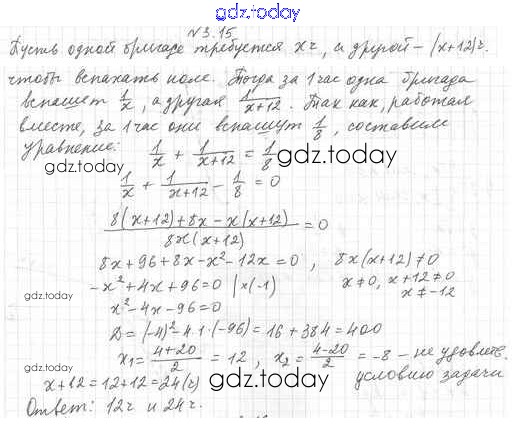 gdz.today
N 3.15
Пусть одной бригаде требуется x ч, а другой – (x+12) ч.
чтобы вспахать поле. Тогда за 1 час одна бригада
вспашет 1/x, а другая 1/(x+12). Так как, работая
вместе, за 1 час они вспашут 1/8, составим
уравнение: 1/x + 1/(x+12) = 1/8
gdz.today
gdz.today
1/x + 1/(x+12) - 1/8 = 0
(8(x+12)+8x-x(x+12))/(8x(x+12)) = 0
8x+96+8x-x²-12x=0, 8x(x+12)≠0
-x²+4x+96=0 |×(-1) x≠0, x+12≠0
gdz.today
x≠-12
x²-4x-96=0
D=(-4)²-4·1·(-96)=16+384=400
gdz.today
x₁=(4+20)/2=12, x₂=(4-20)/2=-8 – не удовлетв.
x+12=12+12=24(ч) gdz.today условию задачи
Ответ: 12ч и 24ч.
gdz.today